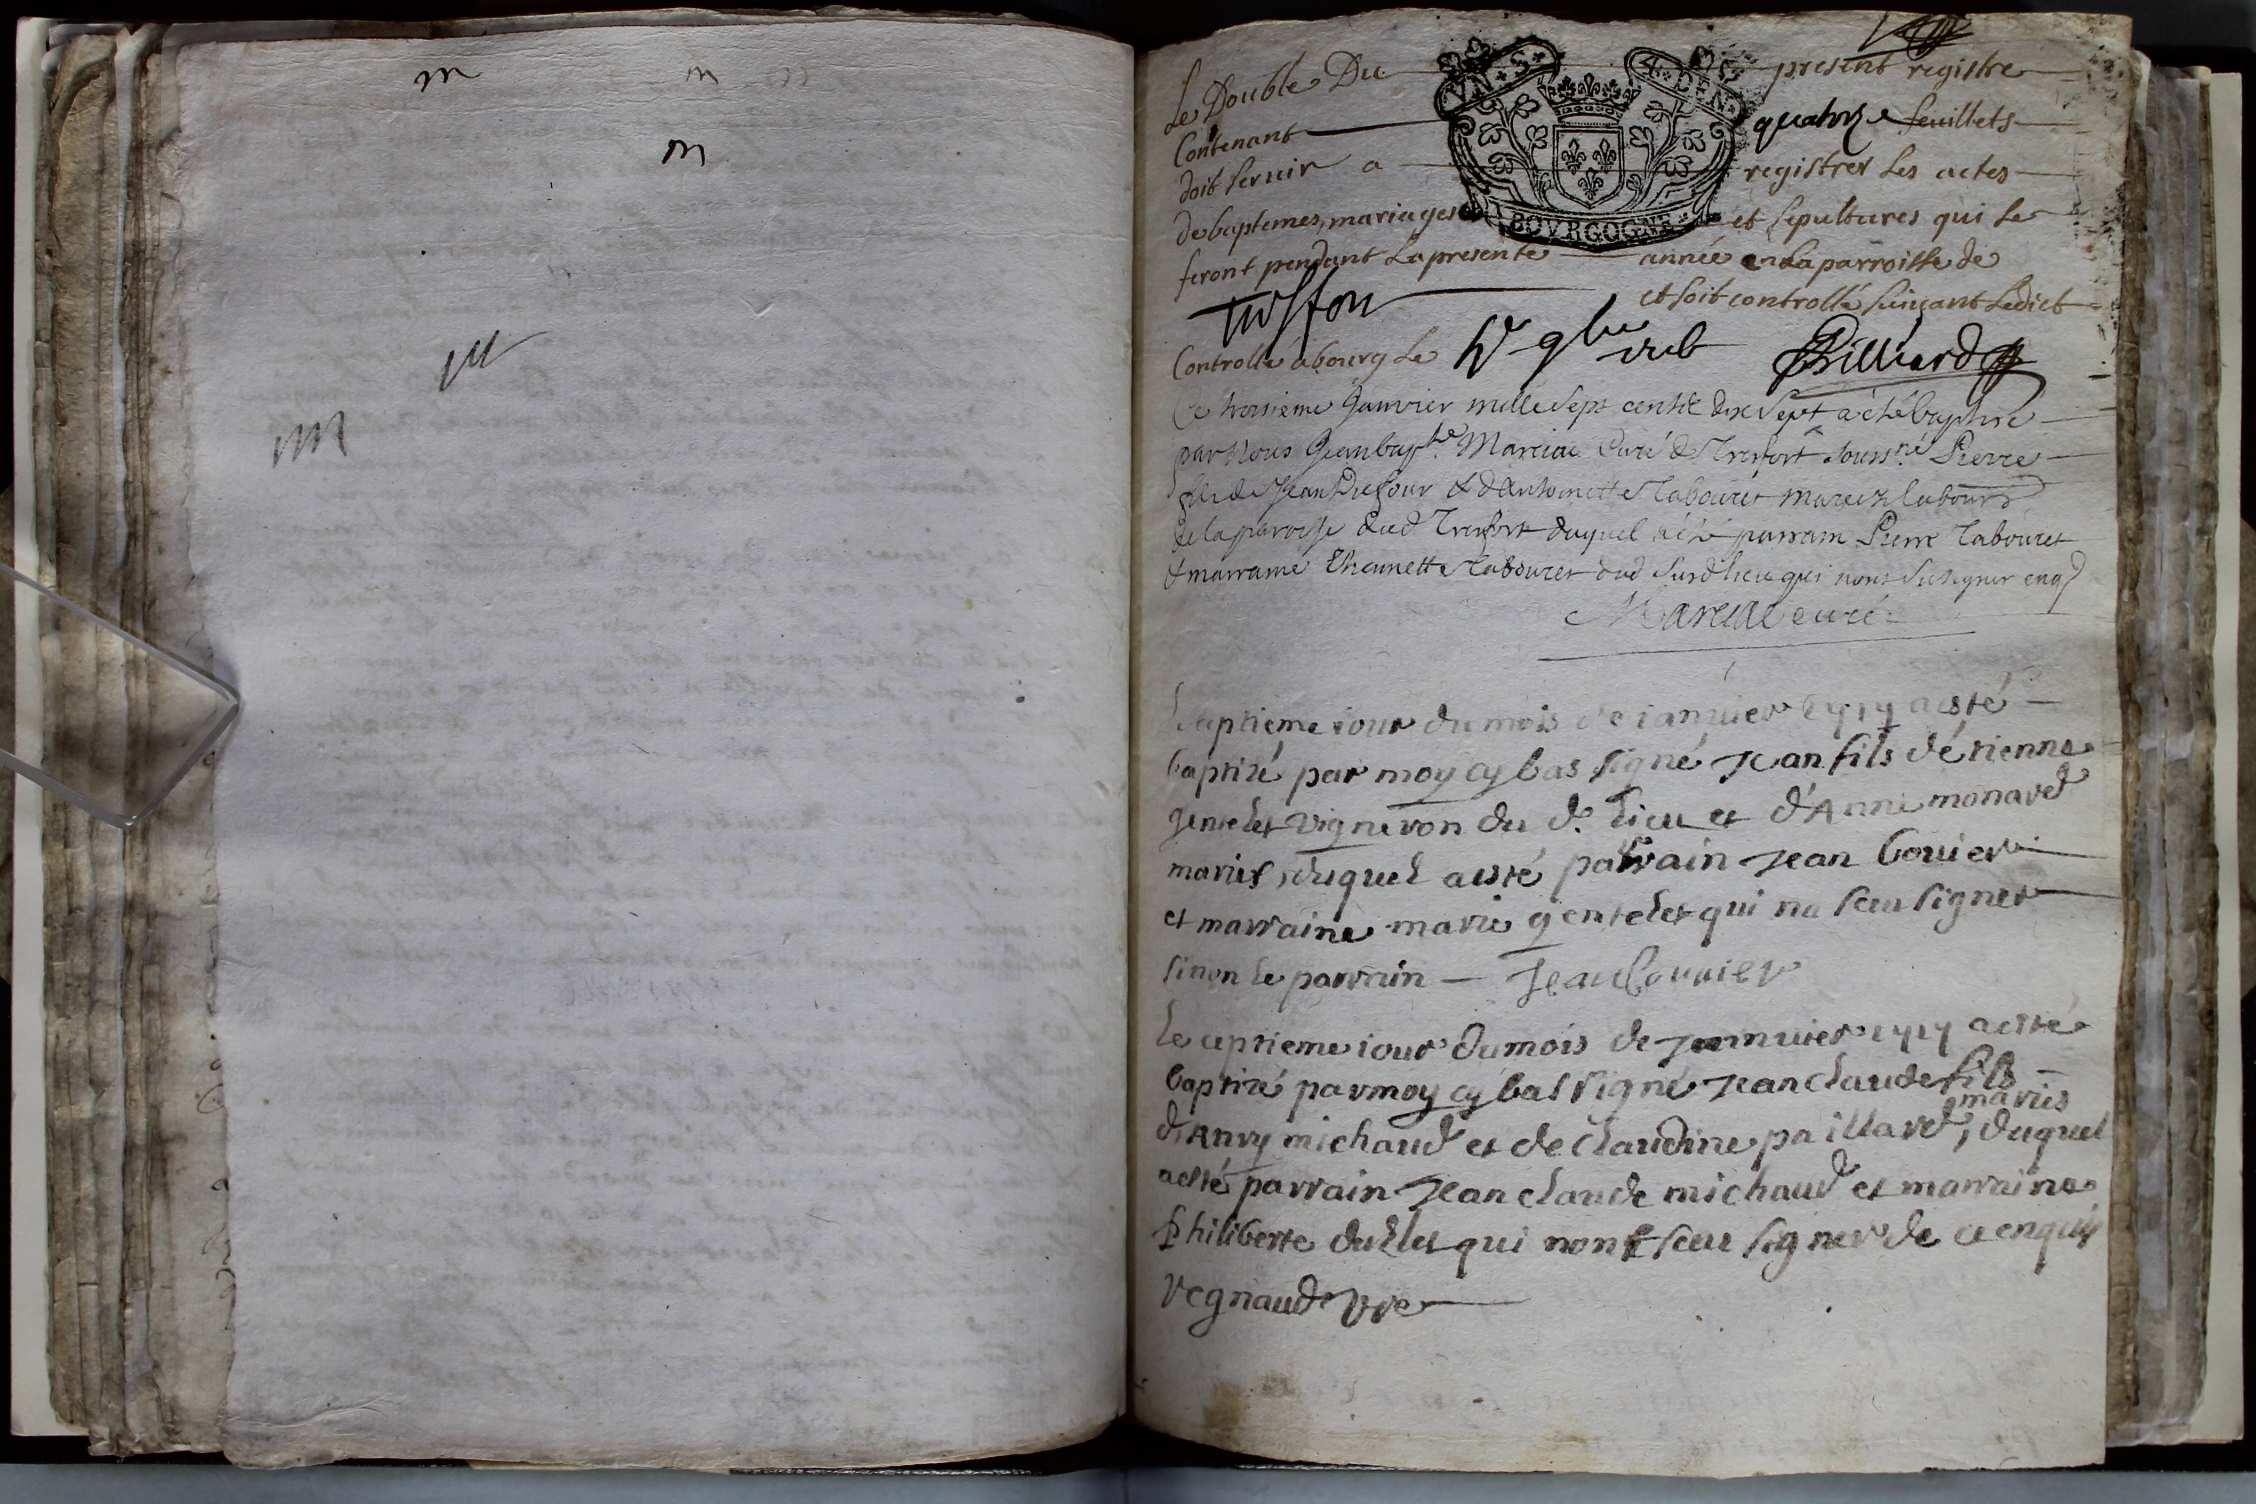 m m m
m
m
m
Le Double Du present registre
VN·S· 4·DEN·
Contenant quatorze feuillets
doit servir a registrer les actes
de baptemes, mariages et sepultures qui se
BOVRGOGNE
feront pendant la presente année en la parroisse de
et soit controllé suivant ledict
Controllé a bourg le
Billiard
Ce troisieme Janvier mille sept cent & dix sept a été baptisé
par Nous Jean bapte. Marciac Curé de Trefort souss.né Pierre
fils de Jean Dufour & d'Antoinette Tabouret mariez labourrs
de la paroisse dud Trefort duquel a été parrain Pierre Tabouret
& marraine Theunette Tabouret dud susd lieu qui n'ont su signer enqs
Marciac curé
Le ceptieme iour du mois de ianvier 1717 a esté
baptizé par moy cy bas signé Jean fils d'étienne
gentelet vigneron du d. lieu et d'Anne monard
mariés, duquel a esté parrain Jean bouier
et marraine marie gentelet qui na sceu signer
sinon le parrain — Jean Bouuier
Le ceptieme iour du mois de Jannuier 1717 a esté
baptizé par moy cy bas signé Jean claude fils
mariés
d'Anry michaud et de claudine paillard, duquel
a esté parrain Jean claude michaud et marraine
philiberte duclet qui nont sceu signer de ce enquis
regnaud vre